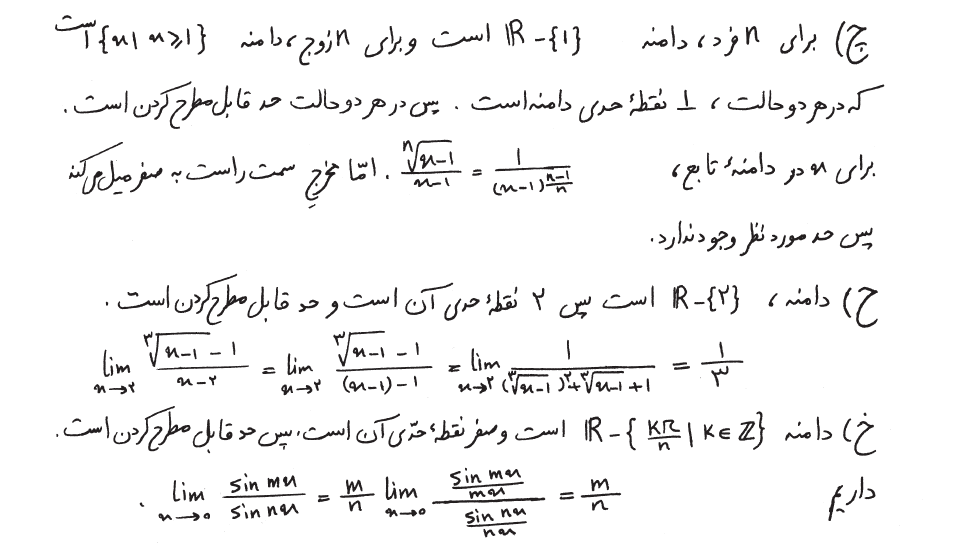 ج) برای n فرد، دامنه R-{1} است و برای n زوج، دامنه {x | x ≥ 1} است
که در هر دو حالت، 1 نقطهٔ حدی دامنه است. پس در هر دو حالت حد قابل مطرح کردن است.
برای x در دامنهٔ تابع، \frac{\sqrt[n]{x-1}}{x-1} = \frac{1}{(x-1)^{\frac{n-1}{n}}} . امّا مخرجِ سمت راست به صفر میل می‌کند
پس حد مورد نظر وجود ندارد.
ح) دامنه، R-{۲} است پس ۲ نقطهٔ حدی آن است و حد قابل مطرح کردن است.
\lim_{x→۲} \frac{\sqrt[۳]{x-1}-1}{x-۲} = \lim_{x→۲} \frac{\sqrt[۳]{x-1}-1}{(x-1)-1} = \lim_{x→۲} \frac{1}{(\sqrt[۳]{x-1})^۲+\sqrt[۳]{x-1}+1} = \frac{1}{۳}
خ) دامنه R-{\frac{kπ}{n} | k∈Z} است و صفر نقطهٔ حدّی آن است، پس حد قابل مطرح کردن است.
داریم \lim_{x→۰} \frac{\sin mx}{\sin nx} = \frac{m}{n} \lim_{x→۰} \frac{\frac{\sin mx}{mx}}{\frac{\sin nx}{nx}} = \frac{m}{n} .